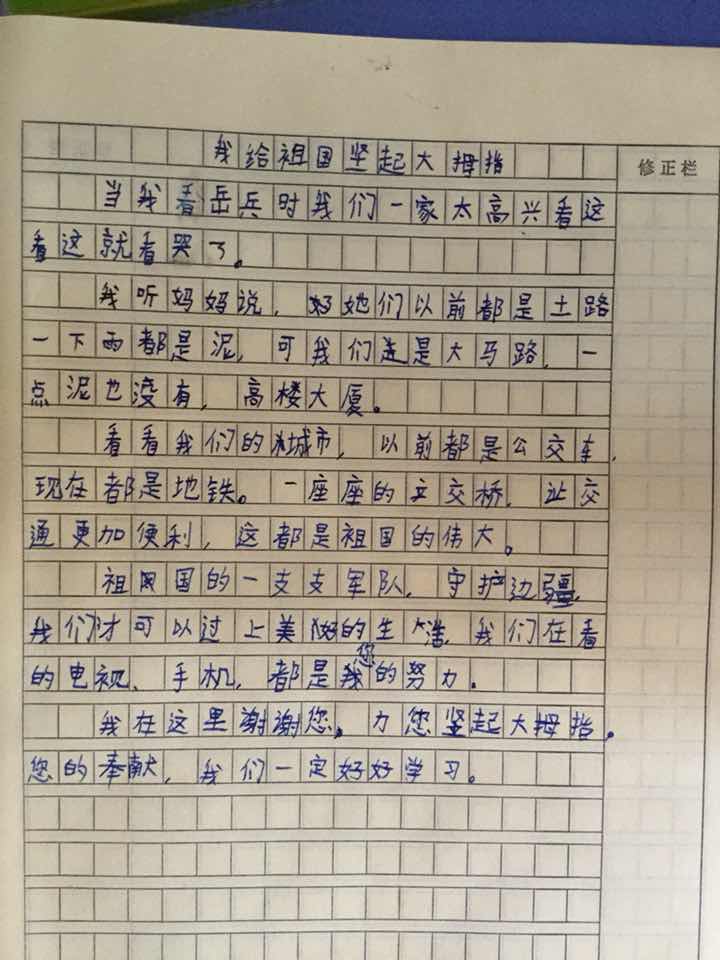 我给祖国坚起大拇指
修正栏
当我看岳兵时我们一家太高兴看这
看这就看哭了。
我听妈妈说，她们以前都是土路
一下雨都是泥，可我们这是大马路，一
点泥也没有，高楼大厦。
看看我们的城市，以前都是公交车，
现在都是地铁。一座座的立交桥，让交
通更加便利，这都是祖国的伟大。
祖国的一支支军队，守护边疆，
我们才可以过上美好的生活，我们在看
的电视、手机，都是您的努力。
我在这里谢谢您，力您坚起大拇指。
您的奉献，我们一定好好学习。